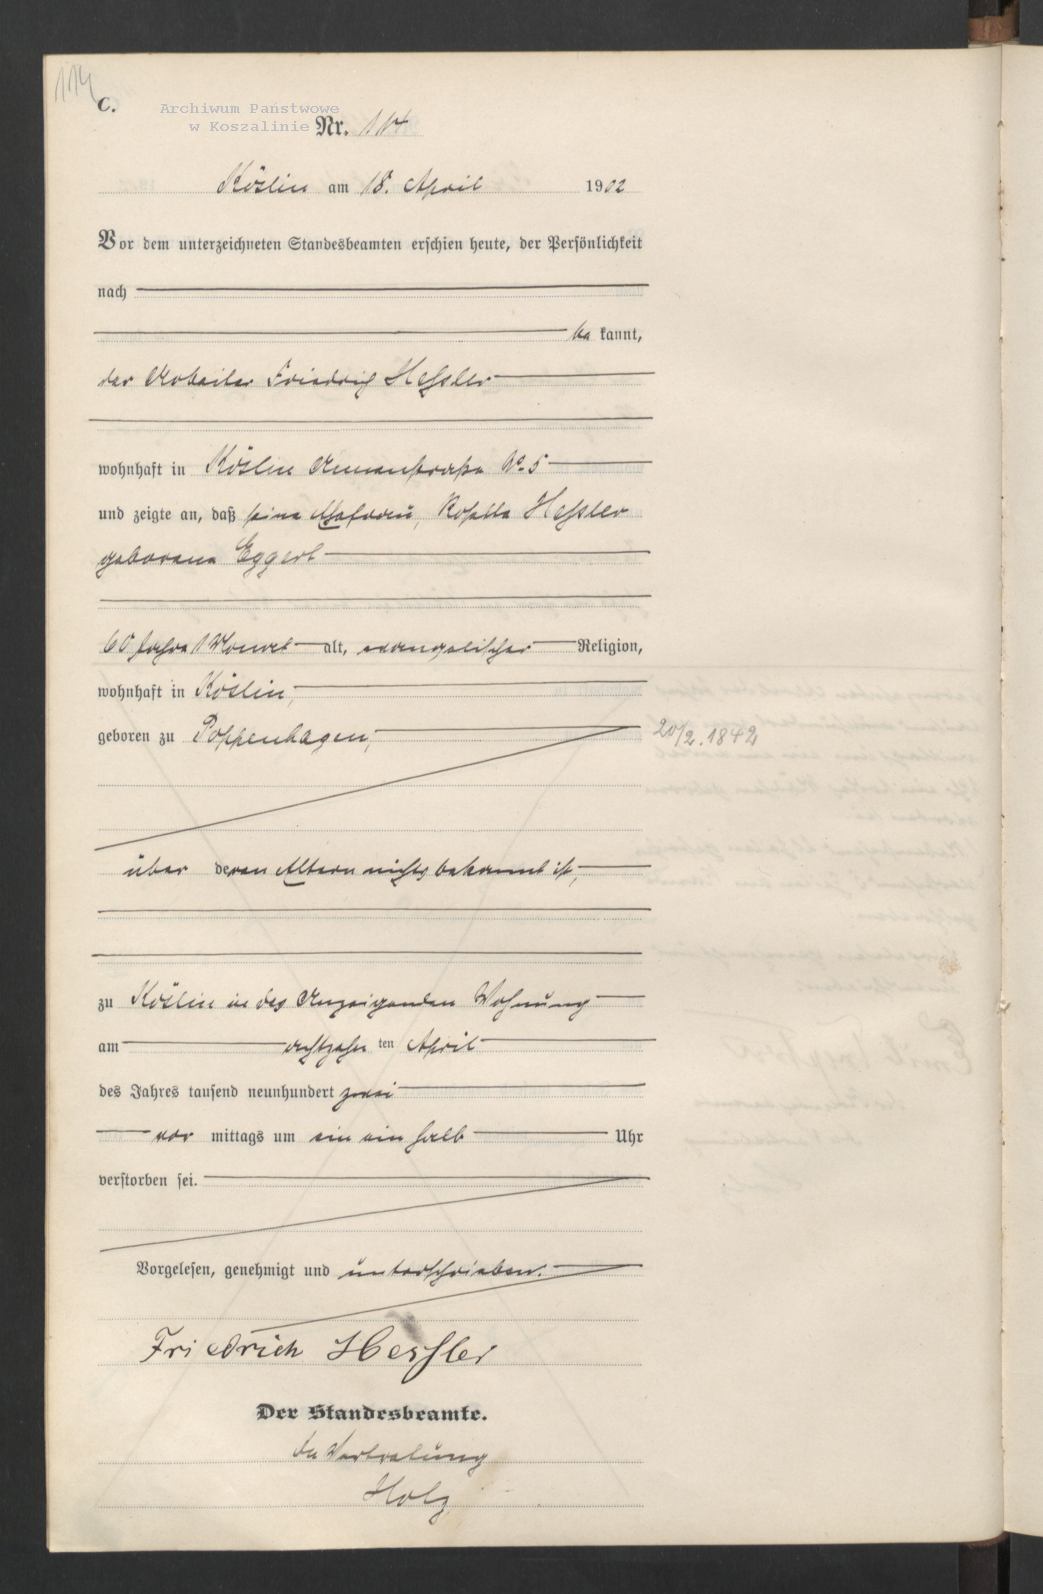 114
C.
Archiwum Państwowe
w Koszalinie
Nr. 114
Köslin am 18. April 1902
Vor dem unterzeichneten Standesbeamten erschien heute, der Persönlichkeit
nach
be kannt,
der Arbeiter Friedrich Heßler
wohnhaft in Köslin No 5
und zeigte an, daß seine Ehefrau, Heßler
geborene Eggert
60 Jahre 1 Monat alt, evangelischer Religion,
wohnhaft in Köslin,
geboren zu Poppenhagen,
20/2. 1842
über deren Altern nichts bekannt ist,
zu Köslin in des Anzeigenden Wohnung
am achtzehn ten April
des Jahres tausend neunhundert zwei
vor mittags um ein ein halb Uhr
verstorben sei.
Vorgelesen, genehmigt und unterschrieben.
Friedrich Hessler
Der Standesbeamte.
In Vertretung
Holz